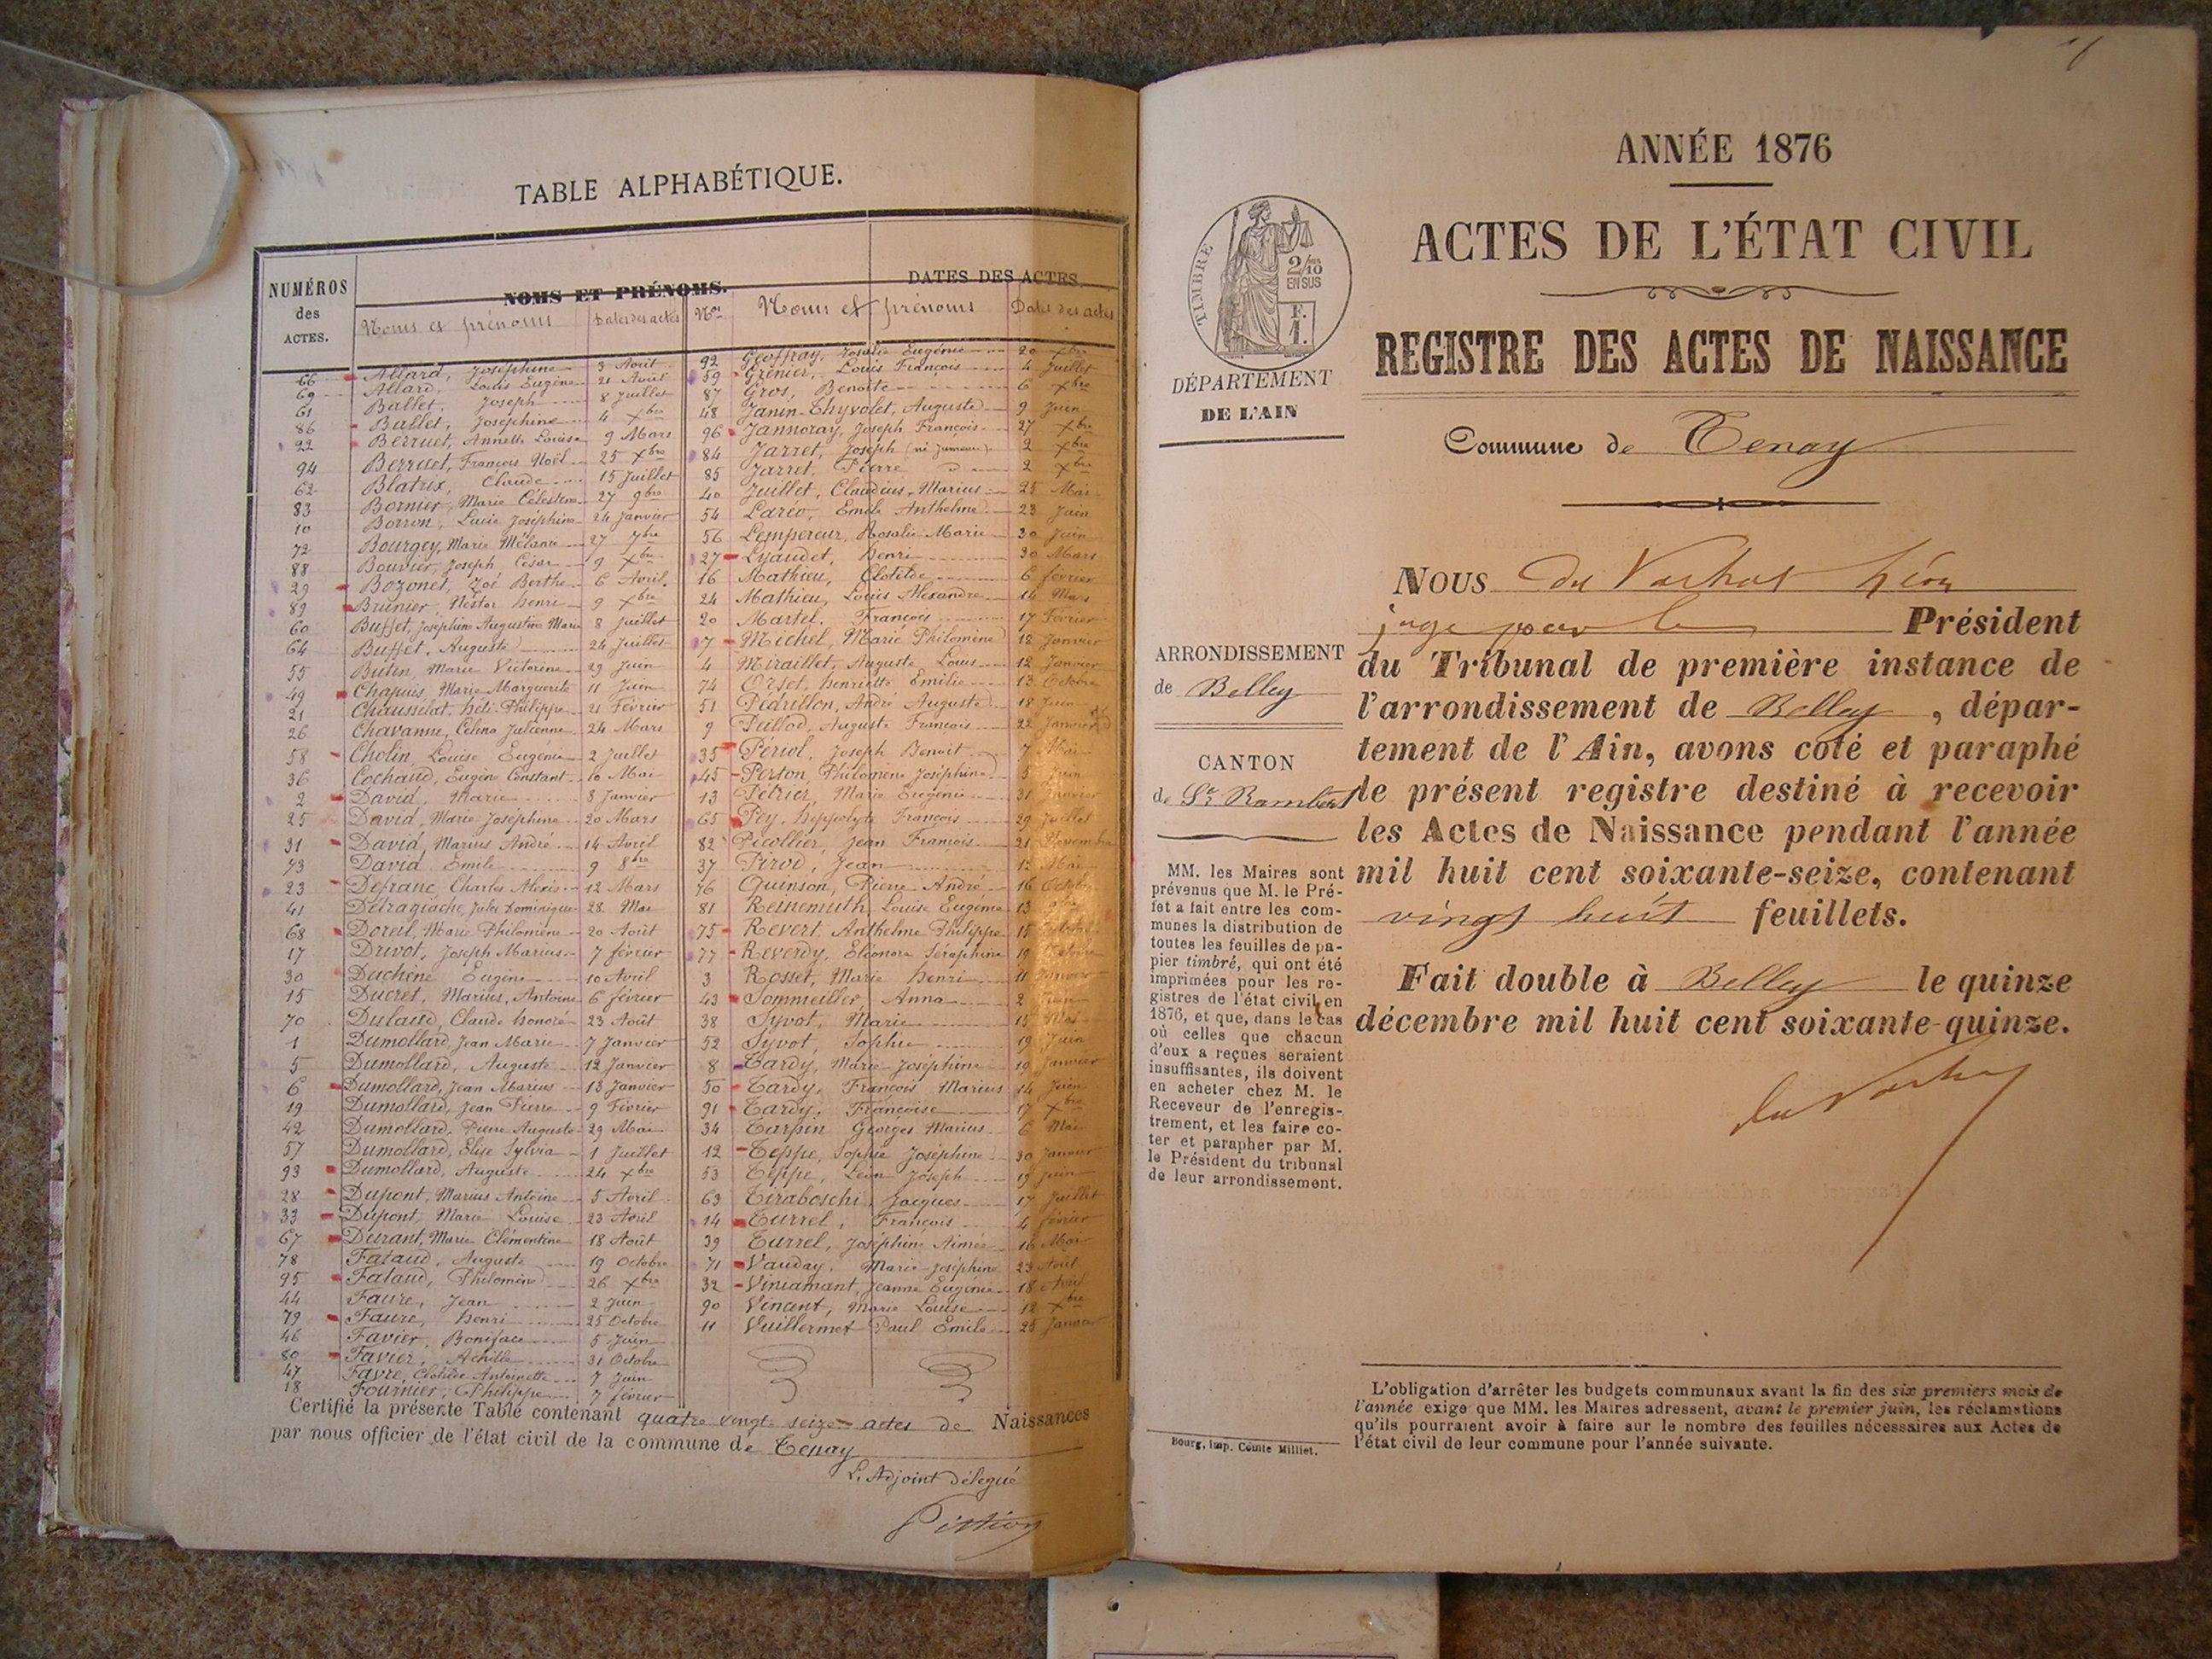 TABLE ALPHABÉTIQUE.
NUMÉROS des ACTES.
NOMS ET PRÉNOMS.
DATES DES ACTES.
Noms et prénoms Dates des actes Nos Noms et prénoms Dates des actes
66 Allard, Joséphine 3 Août
69 Allard, Louis Eugène 21 Août
61 Ballet, Joseph 8 Juillet
86 Ballet, Joséphine 4 Xbre
22 Berruet, Annette Louise 9 Mars
94 Berruet, François Noël 25 Xbre
62 Blatrix, Claude 15 Juillet
83 Bornier, Marie Célestine 27 9bre
10 Borron, Lucie Joséphine 24 Janvier
72 Bourgey, Marie Mélanie 27 7bre
88 Bouvier, Joseph César 9 Xbre
29 Bozonet, Zoé Berthe 6 Avril
89 Brunier, Nestor henri 9 Xbre
60 Buffet, Joséphine Augustine Marie 8 Juillet
64 Buffet, Auguste 24 Juillet
55 Butin, Marie Victorine 29 Juin
49 Chapuis, Marie Marguerite 11 Juin
21 Chausselat, Philippe 21 Février
26 Chavanne, Célina Julienne 24 Mars
58 Cholin, Louise Eugénie 2 Juillet
36 Cochaud, Eugène Constant 10 Mai
2 David, Marie 8 Janvier
25 David, Marie Joséphine 20 Mars
31 David, Marius André 14 Avril
73 David Emile 9 8bre
23 Defranc, Charles Alexis 12 Mars
41 Détragiache, Jules Dominique 28 Mai
68 Doreil, Marie Philomène 20 Août
17 Drivot, Joseph Marius 7 février
30 Duchêne Eugène 10 Avril
15 Ducret, Marius, Antoine 6 février
70 Dulaud, Claude honoré 23 Août
1 Dumollard, Jean Marie 7 Janvier
5 Dumollard, Auguste 12 Janvier
6 Dumollard, Jean Marius 13 Janvier
19 Dumollard, Jean Pierre 9 Février
42 Dumollard, Pierre Auguste 29 Mai
57 Dumollard, Elise Sylvia 1 Juillet
93 Dumollard, Auguste 24 Xbre
28 Dupont, Marius Antoine 5 Avril
33 Dupont, Marie Louise 23 Avril
67 Durant, Marie Clémentine 18 Août
78 Fataud, Auguste 19 Octobre
95 Fataud, Philomène 26 Xbre
44 Faure, Jean 2 Juin
79 Faure, henri 25 Octobre
46 Favier, Boniface 5 Juin
80 Favier, Achille 31 Octobre
47 Favre, Clotilde Antoinette 7 Juin
18 Fournier, Philippe 7 février
92 Geoffray, Rosalie Eugénie 20 Xbre
59 Grenier, Louis François 4 Juillet
87 Gros, Benoite 6 Xbre
48 Janin-Thyvolet, Auguste 9 Juin
96 Jannoray, Joseph François 27 Xbre
84 Jarret, Joseph (né jumeau) 2 Xbre
85 Jarret, Pierre d 2 Xbre
40 Juillet, Claudius, Marius 25 Mai
54 Larco, Emile Anthelme 23 Juin
56 Lempereur, Rosalie Marie 30 Juin
27 Lyaudet, henri 30 Mars
16 Mathieu, Clotilde 6 février
24 Mathieu, Louis Alexandre 14 Mars
20 Martel, François 17 Février
7 Michel, Marie Philomène 18 Janvier
4 Miraillet, Auguste Louis 12 Janvier
74 Orset, henriette Emilie 13 Octobre
51 Pédrillon, André Auguste 18 Juin
9 Peillod, Auguste François 22 Janvier
35 Périol, Joseph Benoit 7 Mai
45 Person, Philomène Joséphine 3 Juin
13 Pétrier, Marie Eugénie 31 Janvier
65 Pey, hippolyte François 29 Juillet
82 Picollier, Jean François 21 Novembre
37 Pirod, Jean 12 Mai
76 Quinson, Pierre André 16 Octobre
81 Reinemuth, Louise Eugénie 13 9bre
75 Revert, Anthelme Philippe 15 Octobre
77 Reverdy, Eléonore Séraphine 19 Octobre
3 Rosset, Marie henri 11 Janvier
43 Sommeiller, Anna 2 Juin
38 Syvot, Marie 15 Mai
52 Syvot, Sophie 19 Juin
8 Tardy, Marie Joséphine 19 Janvier
50 Tardy, François Marius 14 Juin
91 Tardy, Françoise 17 Xbre
34 Tarpin Georges Marius 6 Mai
12 Teppe, Sophie Joséphine 30 Janvier
53 Teppe, Léon Joseph 19 Juin
63 Tiraboschi, Jacques 17 Juillet
14 Turrel, François 4 février
39 Turrel, Joséphine Aimée 16 Mai
71 Vauday, Marie Joséphine 23 Août
32 Viniamant, Jeanne Eugénie 18 Avril
90 Vincent, Marie Louise 12 Xbre
11 Vuillermet Paul Emile 25 Janvier
Certifié la présente Table contenant quatre vingt seize actes de Naissances
par nous officier de l'état civil de la commune de Tenay
L'Adjoint délégué
1
ANNÉE 1876
ACTES DE L'ÉTAT CIVIL
REGISTRE DES ACTES DE NAISSANCE
TIMBRE
2/10
EN SUS
F.
1.
DÉPARTEMENT
DE L'AIN
Commune de Tenay
ARRONDISSEMENT
de Belley
CANTON
de St Rambert
MM. les Maires sont
prévenus que M. le Pré-
fet a fait entre les com-
munes la distribution de
toutes les feuilles de pa-
pier timbré, qui ont été
imprimées pour les re-
gistres de l'état civil en
1876, et que, dans le cas
où celles que chacun
d'eux a reçues seraient
insuffisantes, ils doivent
en acheter chez M. le
Receveur de l'enregis-
trement, et les faire co-
ter et parapher par M.
le Président du tribunal
de leur arrondissement.
Bourg, imp. Comte Milliet.
NOUS du Vachat Léon
juge pour le Président
du Tribunal de première instance de
l'arrondissement de Belley, dépar-
tement de l'Ain, avons coté et paraphé
le présent registre destiné à recevoir
les Actes de Naissance pendant l'année
mil huit cent soixante-seize, contenant
vingt huit feuillets.
Fait double à Belley le quinze
décembre mil huit cent soixante-quinze.
du Vachat
L'obligation d'arrêter les budgets communaux avant la fin des six premiers mois de
l'année exige que MM. les Maires adressent, avant le premier juin, les réclamations
qu'ils pourraient avoir à faire sur le nombre des feuilles nécessaires aux Actes de
l'état civil de leur commune pour l'année suivante.